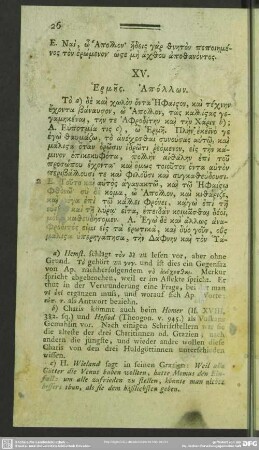 26
Ε. Ναί, ὦ Ἄπολλον· ᾔδεις γὰρ θνητὸν πεποιημένος
τὸν ἐρώμενον· ὥςε μὴ ἄχθου ἀποθανόντος.
XV.
Ἑρμῆς. Ἀπόλλων.
Τὸ δὲ καὶ χωλὸν ὄντα Ἥφαιςον, καὶ τέχνην
ἔχοντα βάναυσον, ὦ Ἄπολλον, τὰς καλλίςας γεγαμηκέναι,
τήν τε Ἀφροδίτην καὶ τὴν Χάριν
Α. Εὐποτμία τις ὦ Ἑρμῆ. Πλὴν ἐκεῖνό γε
ἐγὼ θαυμάζω, τὸ ἀνέχεσθαι συνούσας αὐτῷ, καὶ
μάλιςα ὅταν ὁρῶσιν ἱδρῶτι ῥεόμενον, εἰς τὴν κάμινον
ἐπικεκυφότα, πολλὴν αἰθάλην ἐπὶ τοῦ
προσώπου ἔχοντα· καὶ ὅμως τοιοῦτον ὄντα αὐτὸν
περιβάλλουσί τε καὶ φιλοῦσι καὶ συγκαθεύδουσι.
Ε. Τοῦτο καὶ αὐτὸς ἀγανακτῶ, καὶ τῷ Ἡφαίςῳ
κόμα, ὦ Ἄπολλον, καὶ κιθάριζε,
καὶ μέγα ἐπὶ τῷ κάλλει φρόνει, κἀγὼ ἐπὶ τῇ
καὶ τῇ λύρᾳ· εἶτα, ἐπειδὰν κοιμᾶσθαι δέῃ,
καθευδήσομεν. Α. Ἐγὼ δὲ καὶ ἄλλως ἀναφρόδιτός
εἰμι εἰς τὰ ἐρωτικά, καὶ δύο γοῦν, οὓς
μάλιςα ὑπερηγάπησα, τὴν Δάφνην καὶ τὸν Ὑά-
a) Hemst. schlägt vor zu lesen vor, aber ohne
Grund. Τὸ gehört zu γεγ. und ist dies ein Gegensatz
von Ap. nachherfolgendem τὸ ἀνέχεσθαι. Merkur
spricht abgebrochen, weil er im Affekte spricht. Er
that in der Verwunderung eine Frage, bei der man
τί δεῖ ergänzen muß, und worauf sich Ap. Worte:
εὐπ. τ. als Antwort beziehn.
b) Charis kommt auch beim Homer (Il. XVIII,
382. sq.) und Hesiod (Theogon. v. 945.) als Vulkans
Gemahlin vor. Nach einigen Schriftstellern war sie
die älteste der drei Charitinnen od. Grazien; nach
andern die jüngste, und wieder andre wollen diese
Charis von den drei Huldgöttinnen unterschieden
wissen.
c) H. Wieland sagt in seinen Grazien: Weil alle
Götter die Venus haben wollten, hatte Momus den Einfall:
um alle zufrieden zu stellen, könnte man nichts
bessers thun, als sie dem häßlichsten geben.